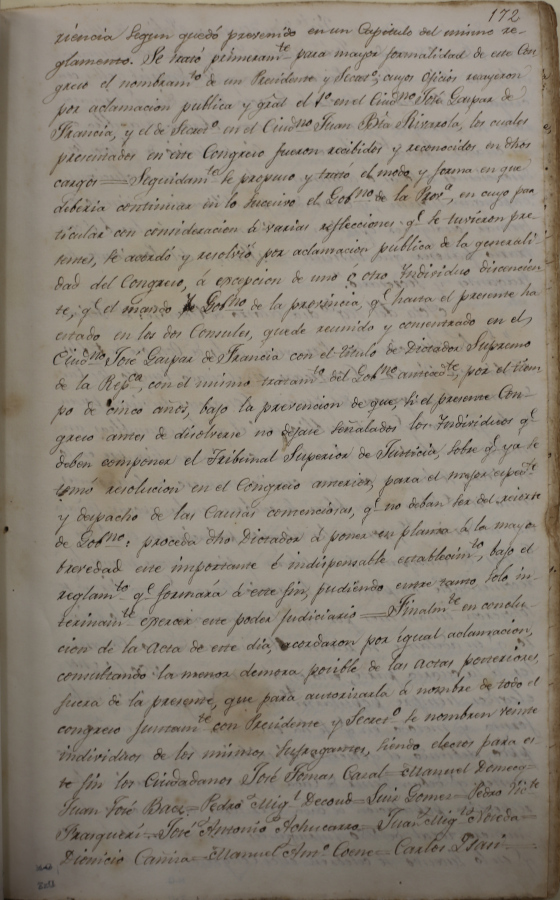 172
riencia segun quedó prevenido en un Capitulo del mismo re-
glamento. Se trató primeramte para mayor formalidad de este Con-
greso el nombramto de un Presidente y Secreto, cuyos oficios recayeron
por aclamacion publica y gral el 1o en el Ciudno José Gaspar de
Francia, y el de Secreto en el Ciudno Juan Bta Rivarola, los cuales
precitados en este Congreso fueron recibidos y reconocidos en dhos
cargos = Seguidamte se propuso y trató el modo y forma en que
deberia continuar en lo sucesivo el Gobno de la Prova, en cuyo par
ticular con consideracion á varias reflecciones qe se tuvieron pre-
sentes, se acordó y resolvió por aclamacion publica de la generali-
dad del Congreso, á excepcion de uno ú otro Individuo dicencien
te, qe el mando de Gobno de la provincia, qe hasta el presente ha
estado en los dos Consules, quede reunido y consentrado en el
Ciudno José Gaspar de Francia con el titulo de Dictador Supremo
de la Repca, con el mismo tratamto del Gobno antecedte, por el tiem
po de cinco años, bajo la prevencion de que, si el presente Con-
greso antes de disolverse no dejase señalados los Individuos qe
deben componer el Tribunal Superior de Justicia, sobre qe ya se
tomó resolucion en el Congreso anterior, para el mejor expedte
y despacho de las Causas contenciosas, qe no deban ser del resorte
de Gobno: proceda dho Dictador á poner en planta á la mayor
brevedad este importante é indispensable establecimto, bajo el
reglamto qe formará á este fin, pudiendo entre tanto solo in-
terinamte exercer este poder judiciario = Finalmte en conclu-
cion de la Acta de este dia, acordaron por igual aclamacion,
consultando la menor demora posible de las actas posteriores,
fuera de la presente, que para autorizarla á nombre de todo el
congreso juntamte con Presidente y Secreto se nombren veinte
individuos de los mismos sufragantes, siendo electos para es-
te fin los Ciudadanos José Tomas Casal = Manuel Domecq =
Juan José Baez = Pedro Migl Decoud = Luis Gomes = Pedro Victe
José Antonio Achucarro = Juan Migl
Dionicio Cañisa = Manuel Anto Coene = Carlos